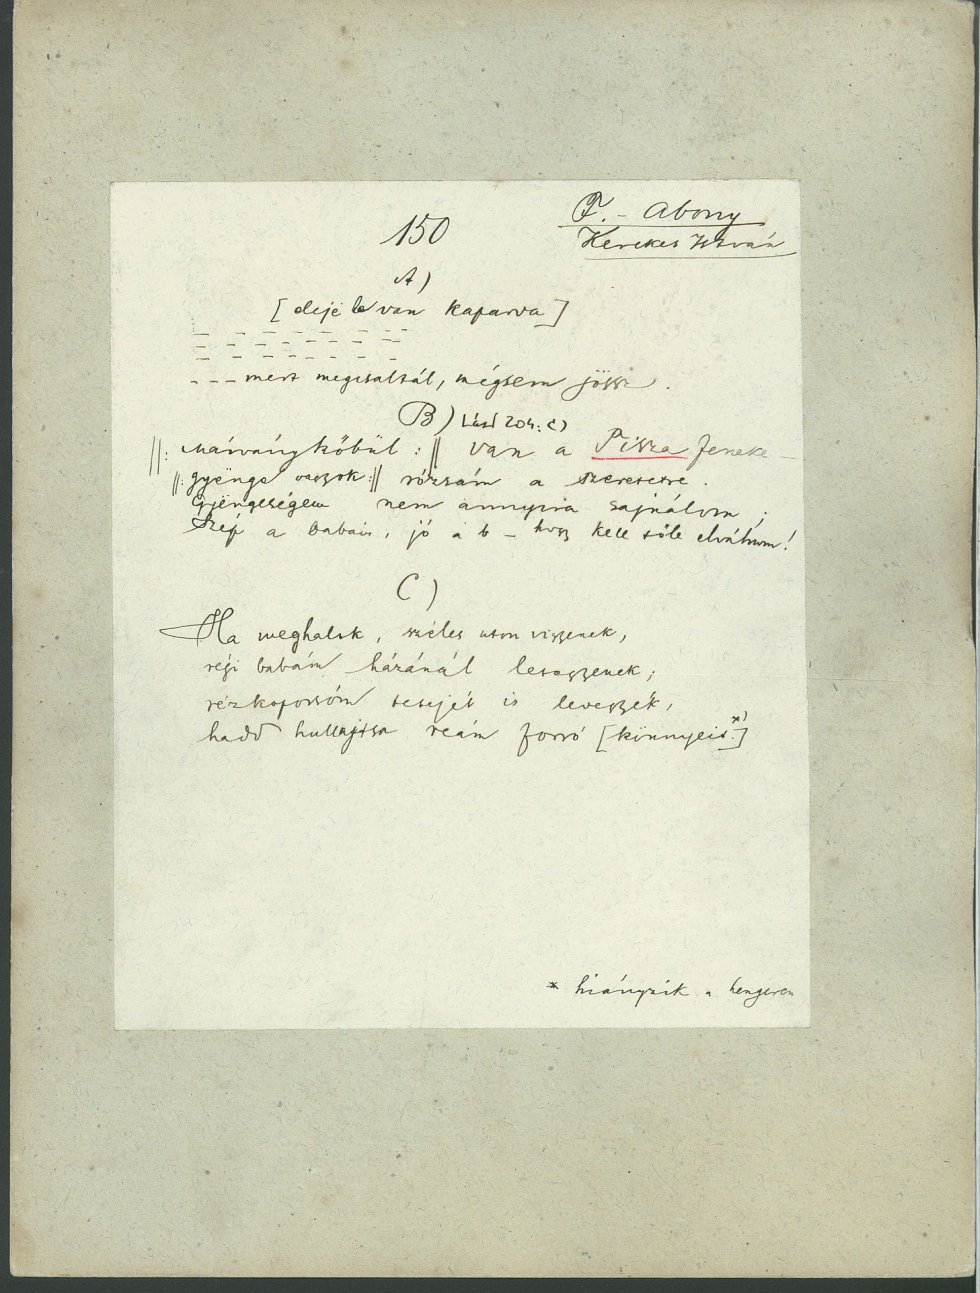 150
T. - Abony
Kerekes István
A)
[eleje le van kaparva]
--- mert megcsaltál, mégsem jössz.
B) Lásd 204: c)
||: Márványkőbül :|| van a Tisza feneke -
||: gyënge vagyok :|| rózsám a szeretetre.
Gyëngeségëm nem annyira sajnálom;
Szép a babám, jó a b - hogy kell tőle elválnom!
C)
Ha meghalok, széles uton vigyenek,
régi babám házánál letegyenek;
rézkoporsóm tetejét is levegyék,
hadd hullajtsa reám forró [könnyeit.*)]
* hiányzik a hengeren